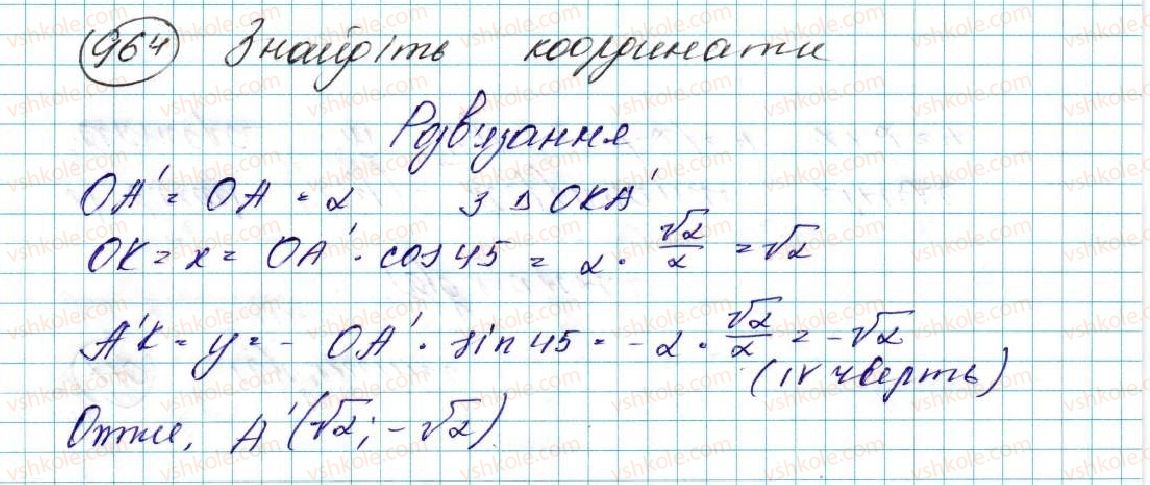 964 Знайдіть координати
Розв'язання
OA' = OA = 2 З Δ OKA'
OK = x = OA' · cos 45 = 2 · √2/2 = √2
A'K = y = - OA' · sin 45 = -2 · √2/2 = -√2
(IV чверть)
Отже, A' (√2; -√2)